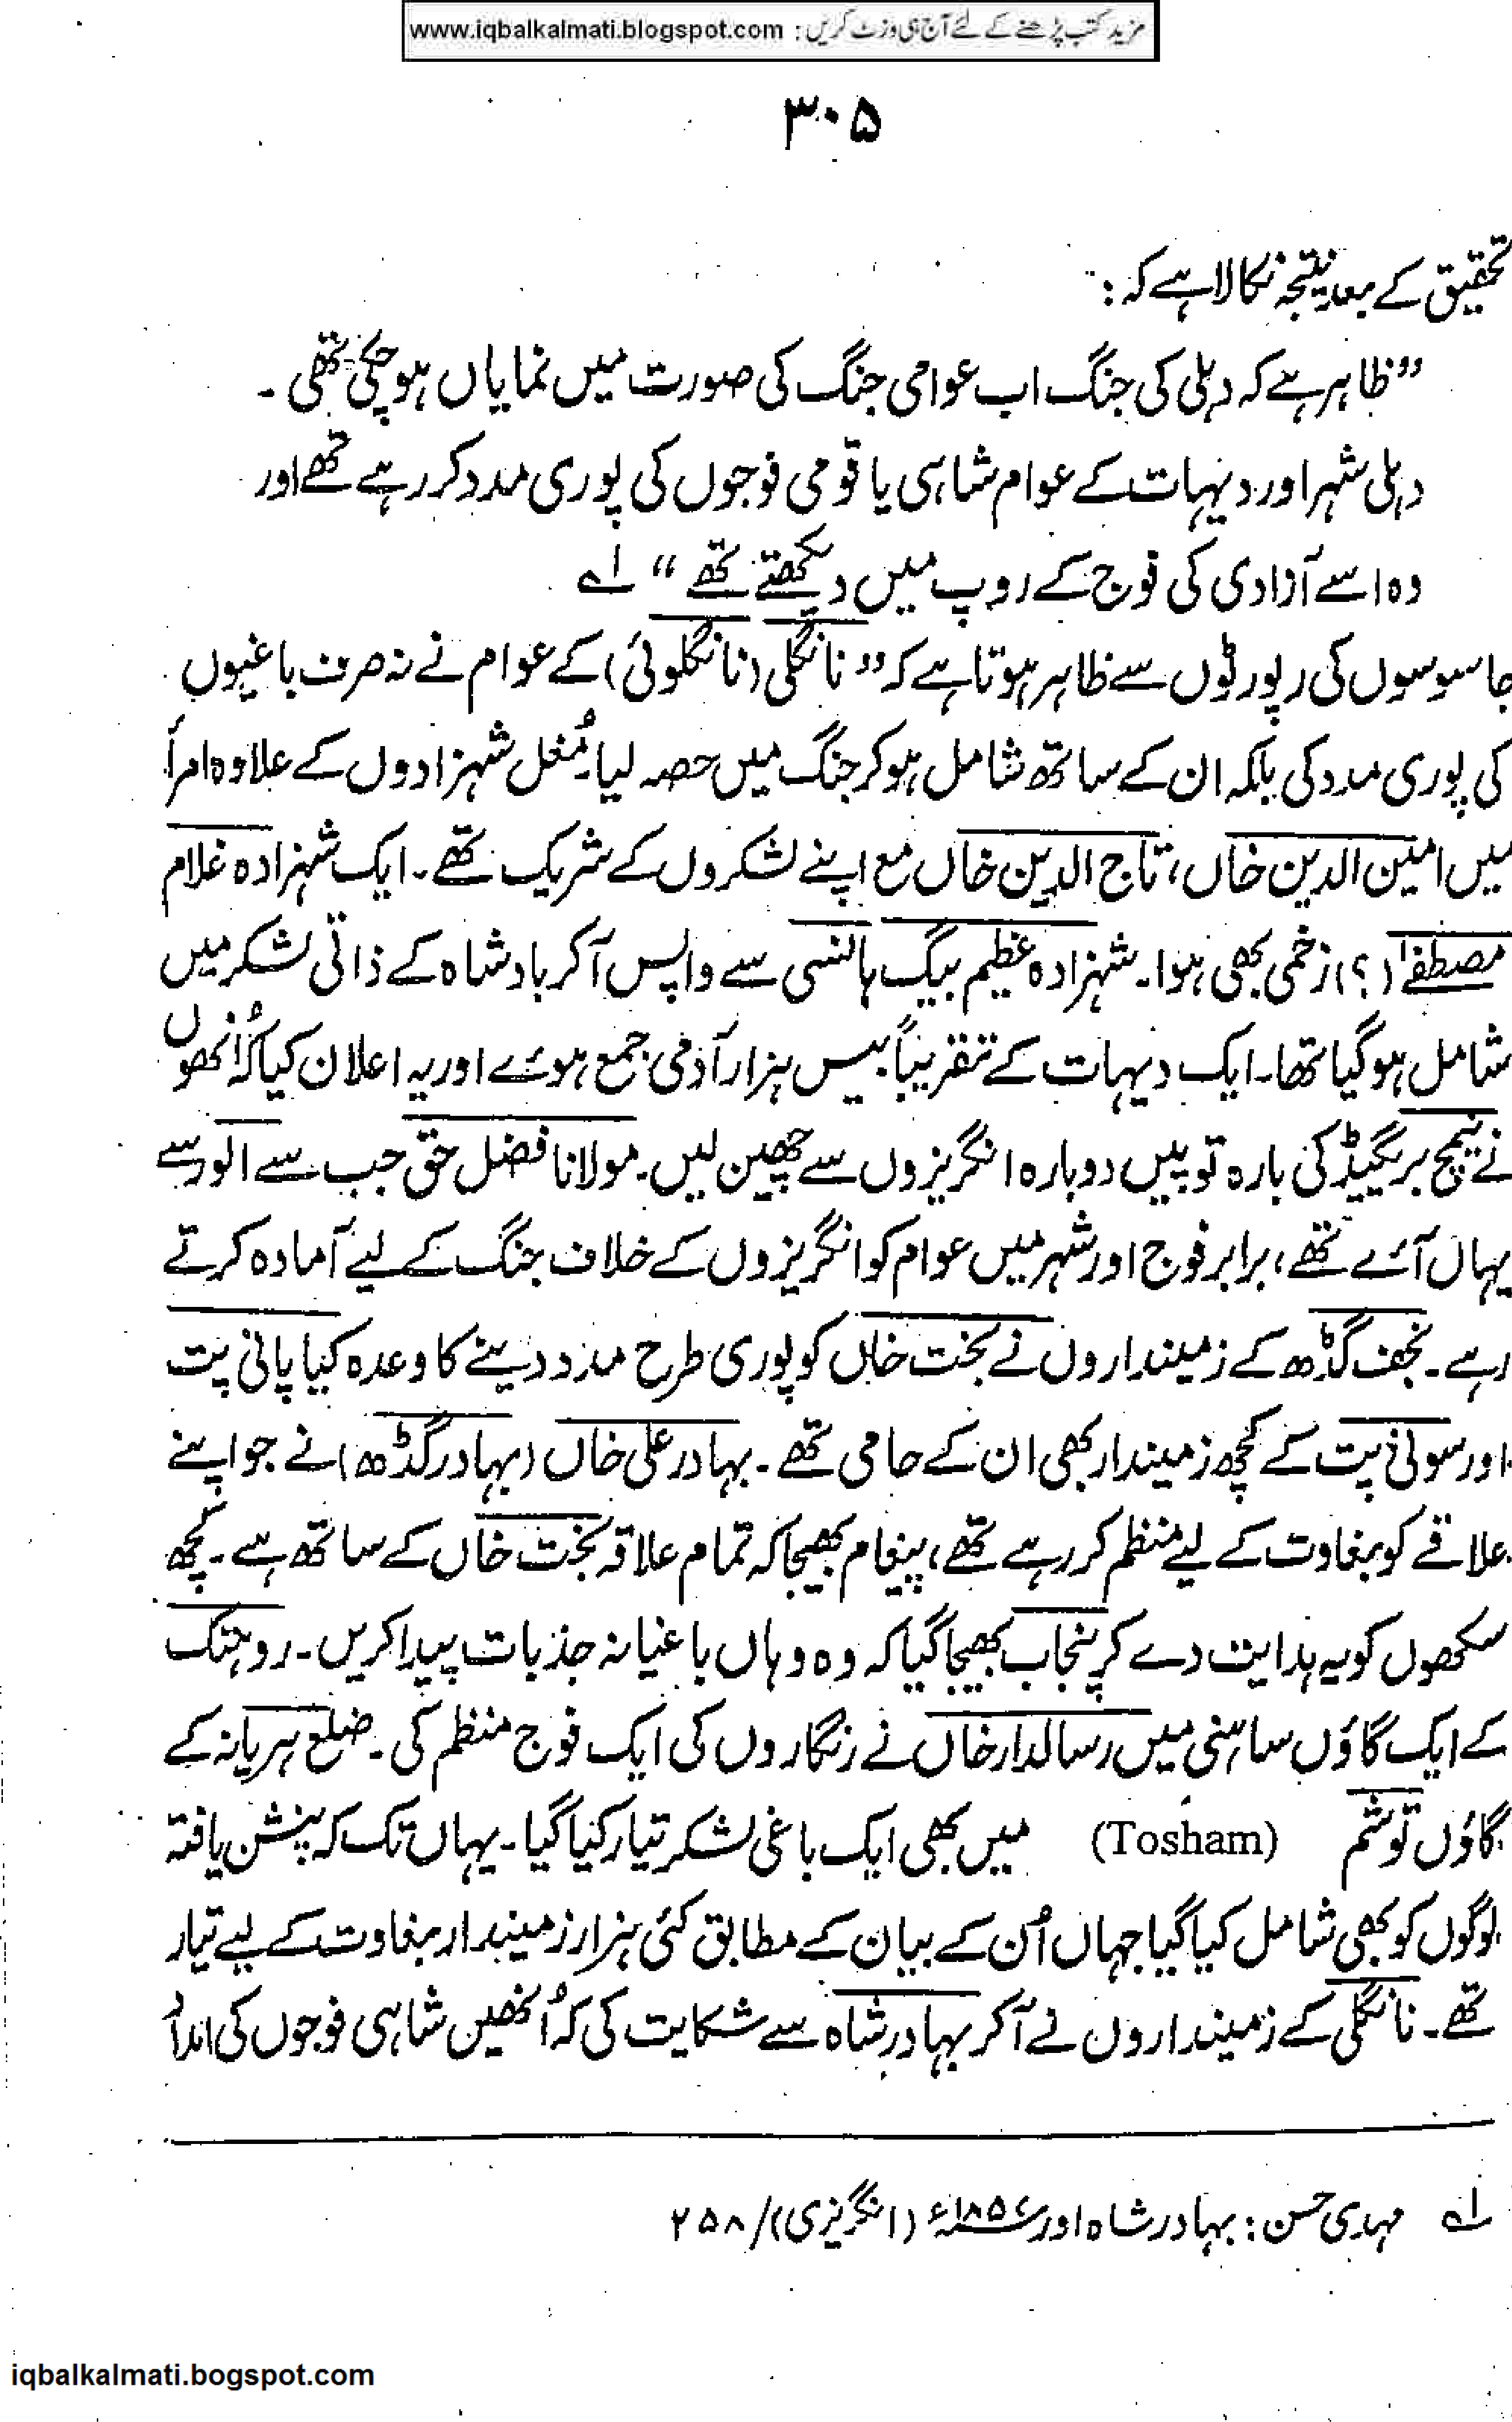 مزید کتب پڑھنے کے لئے آج ہی وزٹ کریں : www.iqbalkalmati.blogspot.com
۳۰۵
تحقیق کے بعد نتیجہ نکالا ہے کہ :
”ظاہر ہے کہ دہلی کی جنگ اب عوامی جنگ کی صورت میں نمایاں ہو چکی تھی ۔
دہلی شہر اور دیہات کے عوام شاہی یا قومی فوجوں کی پوری مدد کر رہے تھے اور
وہ اسے آزادی کی فوج کے روپ میں دیکھتے تھے “ ۱ے
جاسوسوں کی رپورٹوں سے ظاہر ہوتا ہے کہ ” نانگلی (نانگلوئی) کے عوام نے نہ صرف باغیوں
کی پوری مدد کی بلکہ ان کے ساتھ شامل ہو کر جنگ میں حصہ لیا۔ مُغل شہزادوں کے علاوہ امرأ
میں امین الدین خاں، تاج الدین خاں مع اپنے لشکروں کے شریک تھے۔ ایک شہزادہ غلام
مصطفےٰ (؟) زخمی بھی ہوا۔ شہزادہ عظیم بیگ ہانسی سے واپس آکر بادشاہ کے ذاتی لشکر میں
شامل ہو گیا تھا۔ ایک دیہات کے تقریباً بیس ہزار آدمی جمع ہوئے اور یہ اعلان کیا کہ اُنھوں
نے نیمچ بریگیڈ کی بارہ توپیں دوبارہ انگریزوں سے چھین لیں۔ مولانا فضل حق جب سے الور سے
یہاں آئے تھے، برابر فوج اور شہر میں عوام کو انگریزوں کے خلاف جنگ کے لیے آمادہ کرتے
رہے۔ نجف گڈھ کے زمینداروں نے بخت خاں کو پوری طرح مدد دینے کا وعدہ کیا پانی پت
اور سونی پت کے کچھ زمیندار بھی ان کے حامی تھے۔ بہادر علی خاں (بہادر گڈھ) نے جو اپنے
علاقے کو بغاوت کے لیے منظم کر رہے تھے، پیغام بھیجا کہ تمام علاقہ بخت خاں کے ساتھ ہے۔ کچھ
سکھوں کو یہ ہدایت دے کر پنجاب بھیجا گیا کہ وہ وہاں باغیانہ جذبات پیدا کریں۔ روہتک
کے ایک گاؤں ساہنی میں رسالدار خاں نے رنگاروں کی ایک فوج منظم کی۔ ضلع ہریانہ کے
گاؤں توشم (Tosham) میں بھی ایک باغی لشکر تیار کیا گیا۔ یہاں تک کہ پنشن یافتہ
لوگوں کو بھی شامل کیا گیا جہاں اُن کے بیان کے مطابق کئی ہزار زمیندار بغاوت کے لیے تیار
تھے۔ نانگلی کے زمینداروں نے آکر بہادر شاہ سے شکایت کی کہ اُنھیں شاہی فوجوں کی
۱ے مہدی حسن : بہادر شاہ اور ۱۸۵۷ء (انگریزی)/ ۲۵۸
iqbalkalmati.bogspot.com